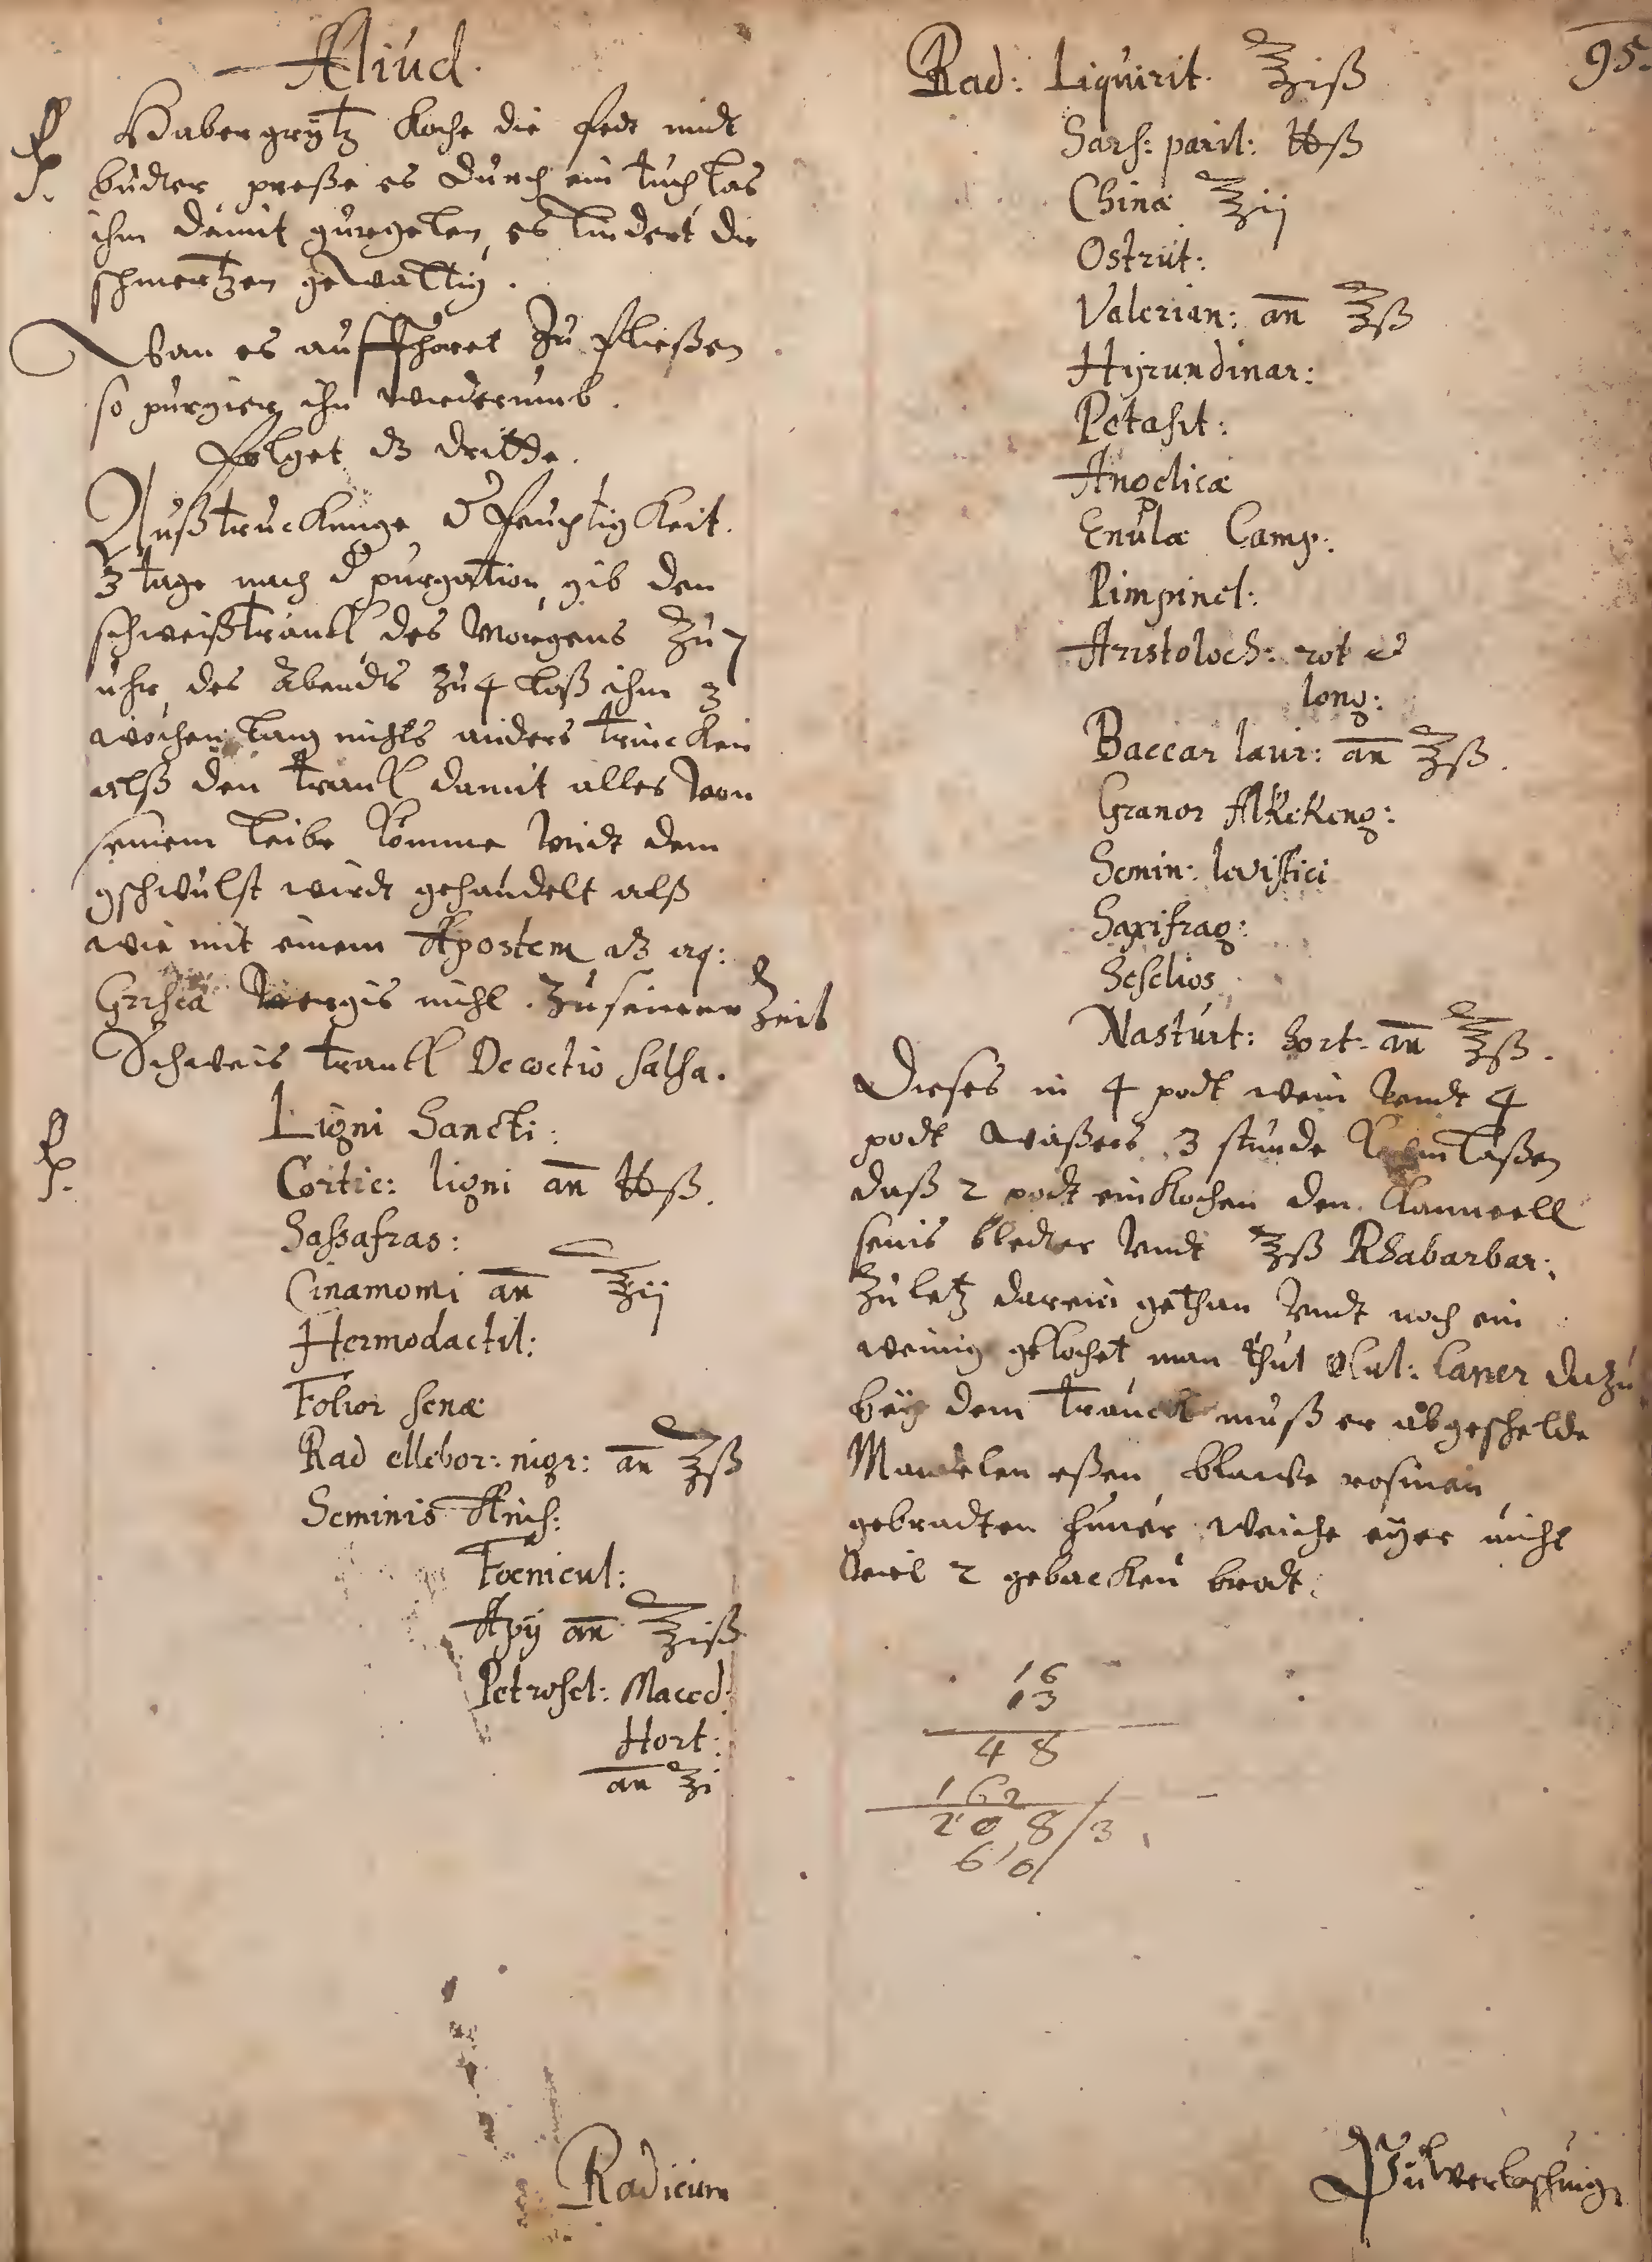 Aliud.
℞. Habergrütz koche die fedt midt
budter, preße es durch ein tuch las
ihm damit gurgelen, es lindert die
schmertzen gewaltig.
Wan es auffhöret zu fließen
so purgier ihn wiederumb.
folget dz dritte.
Außtruckunge d feuchtigkeit.
3 tage nach d purgation, gib den
schweißtranck des Morgens zu 7
uhr, des Abendts zu 4 laß ihm 3
wochen lang nichts anders trincken
alß den tranck damit alles von
seinem leibe komme midt dem
gschwulst wirdt gehandelt alß
wie mit einem Apostem dz aq:
Grisea vergis nicht. zu seiner Zeit
Schweis tranck Decoctio salsa.
℞. Ligni Sancti:
Cortic: ligni an ℔ß.
Saßafras:
Cinamomi an ℥ij
Hermodactil:
Folior senæ
Rad ellebor: nigr: an ℥ß
Seminis Anis:
Foenicul:
Apij an ℥iß
Petrosel: Maced:
Hort:
an ℥i
Radicum
95.
Rad: Liquirit. ℥iß
Sars: paril: ℔ß
Chinæ ℥ij
Ostrut:
Valerian: an ℥ß
Hijrundinar:
Petasit:
Angelicæ
Enulæ Camp:
Pimpinel:
Aristoloch: rot &
long:
Baccar laur: an ℥ß.
Granor Alkekeng:
Semin: levistici
Saxifrag:
Seselios
Nasturt: hort. an ℥ß.
Dieses in 4 podt wein vndt 4
podt waßers 3 stunde kochen laßen
daß 2 podt einkochen den Canneell
senis bledter vndt ℥ß Rhabarbar:
zu letz darein gethan vndt noch ein
weinig gekochet, man thut
dazu
bey dem tranck muß er abgeschelde
Mandelen eßen, blauwe rosinen
gebradten hüner weiche eyer nicht
viel 2 gebacken brodt.
16
13
48
162
208/3
610